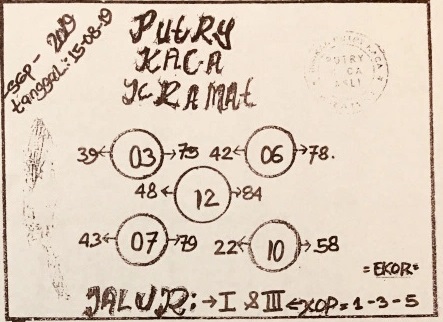 SGP - 2019
tanggal: 15-08-19
PUTRY
KACA
KRAMAt
PUTRY
39 ← 03 → 75 42 ← 06 → 78.
48 ← 12 → 84
43 ← 07 → 79 22 ← 10 → 58
= EKOR =
JALUR: → I & III ← KOP = 1-3-5